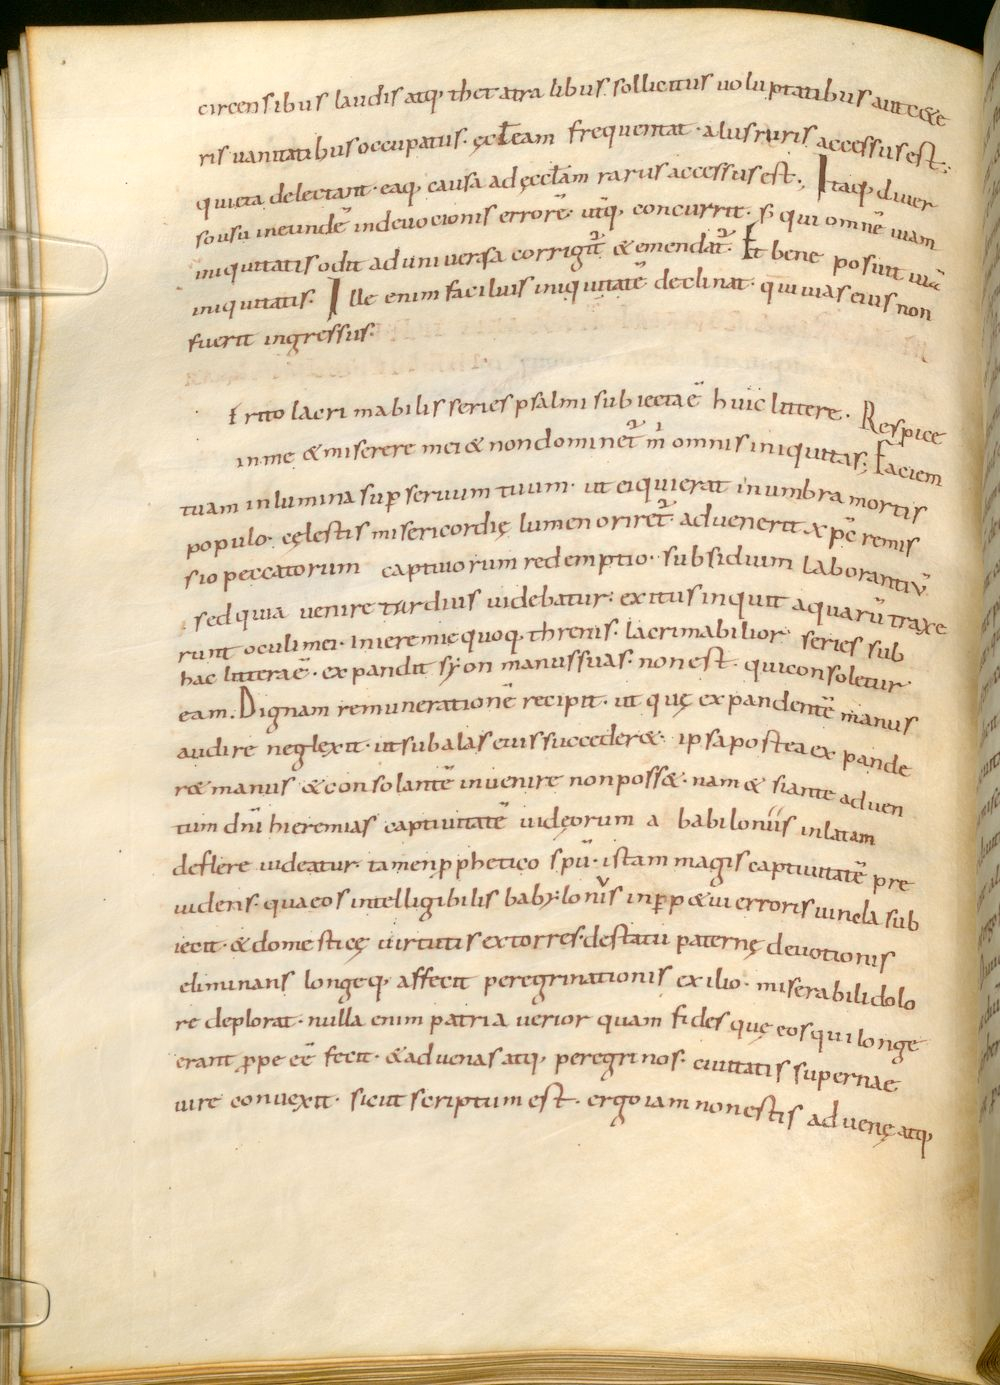 circensibus laudis atq; thetatralibus sollicitus uoluptatibus aut cæte
ris uanitatibus occupatus· ęccl̄eam frequentat· alius ruris accessus est;
quieta delectant· eaq; causa ad ęccl̄am rarus accessus est; Itaq; diuer
so usu ineundē indeuocionis errorē· utq; concurrit· sꝫ qui omnē uiam
iniquitatis odit ad uniuersa corrigit᷒ & emendat᷒· Et bene posuit uiā
iniquitatis· Ille enim facilius iniquitatē declinat· qui uias eius non
fuerit ingressus·
Erito lacrimabilis series psalmi subiecta ē huic littere· Respice
in me & miserere mei & non dominet᷒ m̄ omnis iniquitas; Faciem
tuam inlumina sup̄ seruum tuum· ut ei qui erat in umbra mortis
populo· cęlestis misericordię lumen oriret᷒· aduenerit xp̄c remis
sio peccatorum captiuorum redemptio· subsidium laborantiū
sed quia uenire tardius uidebatur· exitus inquit aquarū traxe
runt oculi mei· in ieremie quoq; threnis· lacrimabilior series sub
hac littera ē· expandit syon manus suas· non est· qui consoletur
eam. Dignam remunerationē recipit· ut quę expandentē manus
audire neglexit· ut sub alas eius succeder&· ipsa postea expande
r& manus & consolantē inuenire non poss&· nam & si ante aduen
tum dn̄i hieremias captiuitatē iudęorum a babiloniis inlatam
deflere uideatur· tamen p̱phetico sp̄u· istam magis captiuitatē pre
uidens· qua eos intelligibilis babylonius in p̱p&ui erroris uincla sub
iecit· & domesticę uirtutis extorres· de statu paternę deuotionis
eliminans longeq; affecit peregrinationis exilio· miserabili dolo
re deplorat· nulla enim patria uerior quam fides quę eos qui longe
erant ꝓpe eē fecit· & aduenas atq; peregrinos· ciuitatis supernae
iure conuexit· sicut scriptum est· ergo iam non estis aduenę atq;